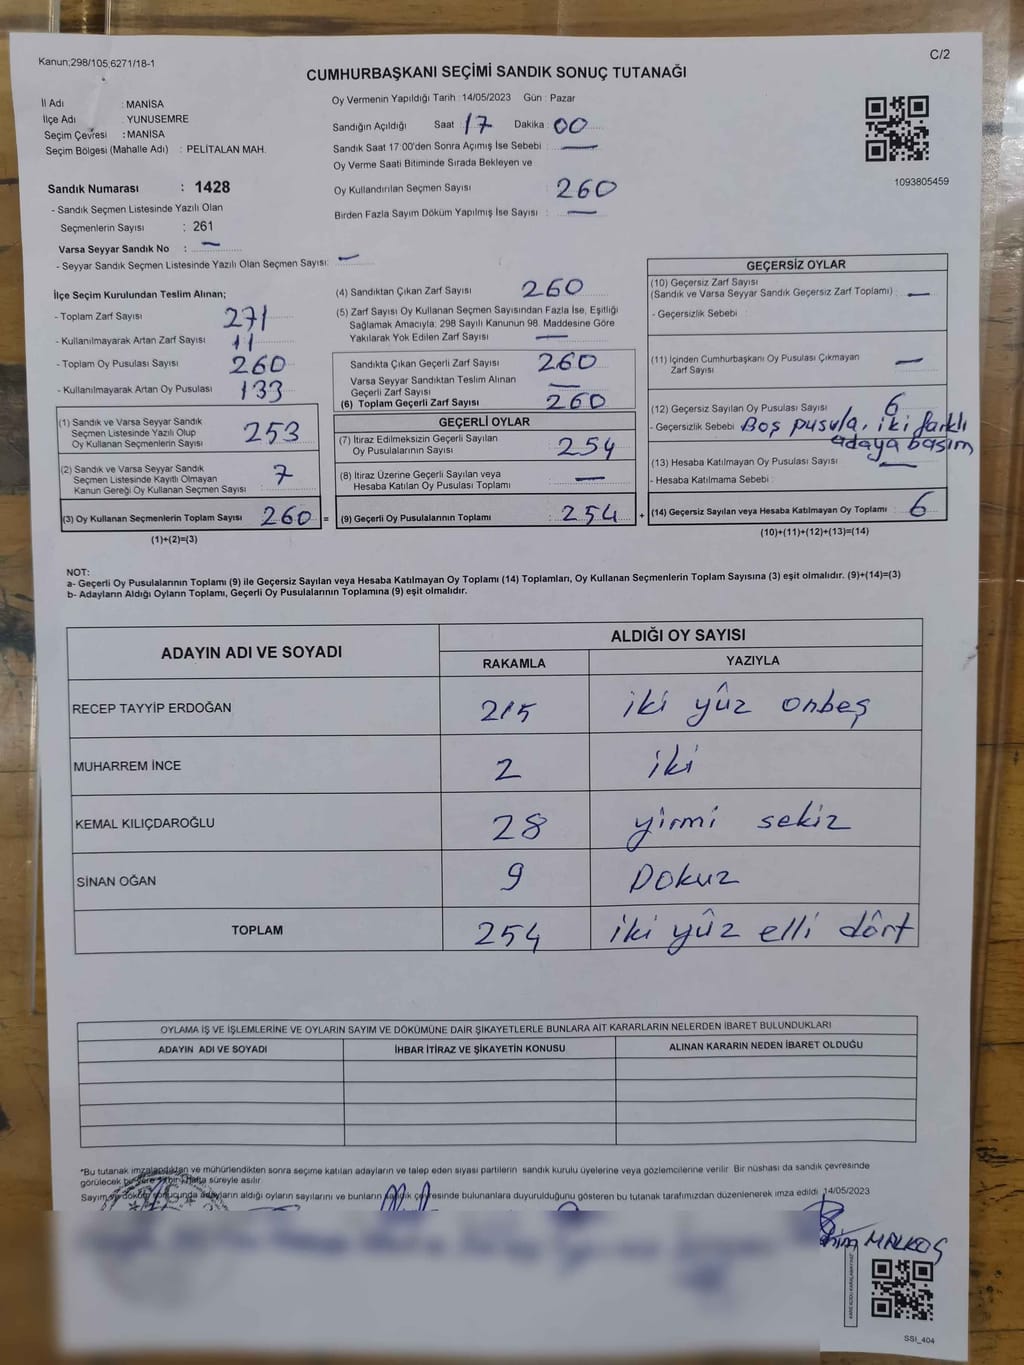 Kanun;298/105;6271/18-1
C/2
CUMHURBAŞKANI SEÇİMİ SANDIK SONUÇ TUTANAĞI
İl Adı : MANİSA
İlçe Adı : YUNUSEMRE
Seçim Çevresi : MANİSA
Seçim Bölgesi (Mahalle Adı) : PELİTALAN MAH.
Sandık Numarası : 1428
- Sandık Seçmen Listesinde Yazılı Olan
Seçmenlerin Sayısı : 261
Varsa Seyyar Sandık No : —
- Seyyar Sandık Seçmen Listesinde Yazılı Olan Seçmen Sayısı: —
Oy Vermenin Yapıldığı Tarih : 14/05/2023 Gün : Pazar
Sandığın Açıldığı Saat : 17 Dakika : 00
Sandık Saat 17:00'den Sonra Açımış İse Sebebi : —
Oy Verme Saati Bitiminde Sırada Bekleyen ve
Oy Kullandırılan Seçmen Sayısı : 260
Birden Fazla Sayım Döküm Yapılmış İse Sayısı : —
1093805459
İlçe Seçim Kurulundan Teslim Alınan;
- Toplam Zarf Sayısı : 271
- Kullanılmayarak Artan Zarf Sayısı : 11
- Toplam Oy Pusulası Sayısı : 260
- Kullanılmayarak Artan Oy Pusulası : 133
(1) Sandık ve Varsa Seyyar Sandık
Seçmen Listesinde Yazılı Olup
Oy Kullanan Seçmenlerin Sayısı : 253
(2) Sandık ve Varsa Seyyar Sandık
Seçmen Listesinde Kayıtlı Olmayan
Kanun Gereği Oy Kullanan Seçmen Sayısı : 7
(3) Oy Kullanan Seçmenlerin Toplam Sayısı : 260 =
(1)+(2)=(3)
(4) Sandıktan Çıkan Zarf Sayısı : 260
(5) Zarf Sayısı Oy Kullanan Seçmen Sayısından Fazla İse, Eşitliği
Sağlamak Amacıyla; 298 Sayılı Kanunun 98. Maddesine Göre
Yakılarak Yok Edilen Zarf Sayısı : —
Sandıkta Çıkan Geçerli Zarf Sayısı : 260
Varsa Seyyar Sandıktan Teslim Alınan
Geçerli Zarf Sayısı : —
(6) Toplam Geçerli Zarf Sayısı : 260
GEÇERLİ OYLAR
(7) İtiraz Edilmeksizin Geçerli Sayılan
Oy Pusulalarının Sayısı : 254
(8) İtiraz Üzerine Geçerli Sayılan veya
Hesaba Katılan Oy Pusulası Toplamı : —
(9) Geçerli Oy Pusulalarının Toplamı : 254 +
GEÇERSİZ OYLAR
(10) Geçersiz Zarf Sayısı
(Sandık ve Varsa Seyyar Sandık Geçersiz Zarf Toplamı) : —
- Geçersizlik Sebebi :
(11) İçinden Cumhurbaşkanı Oy Pusulası Çıkmayan
Zarf Sayısı : —
(12) Geçersiz Sayılan Oy Pusulası Sayısı : 6
- Geçersizlik Sebebi : Boş pusula, iki farklı
adaya basım
(13) Hesaba Katılmayan Oy Pusulası Sayısı : —
- Hesaba Katılmama Sebebi :
(14) Geçersiz Sayılan veya Hesaba Katılmayan Oy Toplamı : 6
(10)+(11)+(12)+(13)=(14)
NOT:
a- Geçerli Oy Pusulalarının Toplamı (9) ile Geçersiz Sayılan veya Hesaba Katılmayan Oy Toplamı (14) Toplamları, Oy Kullanan Seçmenlerin Toplam Sayısına (3) eşit olmalıdır. (9)+(14)=(3)
b- Adayların Aldığı Oyların Toplamı, Geçerli Oy Pusulalarının Toplamına (9) eşit olmalıdır.
ADAYIN ADI VE SOYADI
ALDIĞI OY SAYISI
RAKAMLA YAZIYLA
RECEP TAYYİP ERDOĞAN 215 iki yüz onbeş
MUHARREM İNCE 2 iki
KEMAL KILIÇDAROĞLU 28 yirmi sekiz
SİNAN OĞAN 9 Dokuz
TOPLAM 254 iki yüz elli dört
OYLAMA İŞ VE İŞLEMLERİNE VE OYLARIN SAYIM VE DÖKÜMÜNE DAİR ŞİKAYETLERLE BUNLARA AİT KARARLARIN NELERDEN İBARET BULUNDUKLARI
ADAYIN ADI VE SOYADI İHBAR İTİRAZ VE ŞİKAYETİN KONUSU ALINAN KARARIN NEDEN İBARET OLDUĞU
*Bu tutanak imzalandıktan ve mühürlendikten sonra seçime katılan adayların ve talep eden siyasi partilerin sandık kurulu üyelerine veya gözlemcilerine verilir. Bir nüshası da sandık çevresinde
görülecek bir yere bir hafta süreyle asılır.
Sayım ve döküm sonucunda adayların aldığı oyların sayılarını ve bunların sandık çevresinde bulunanlara duyurulduğunu gösteren bu tutanak tarafımızdan düzenlenerek imza edildi. 14/05/2023
MALKOÇ
SSİ_404